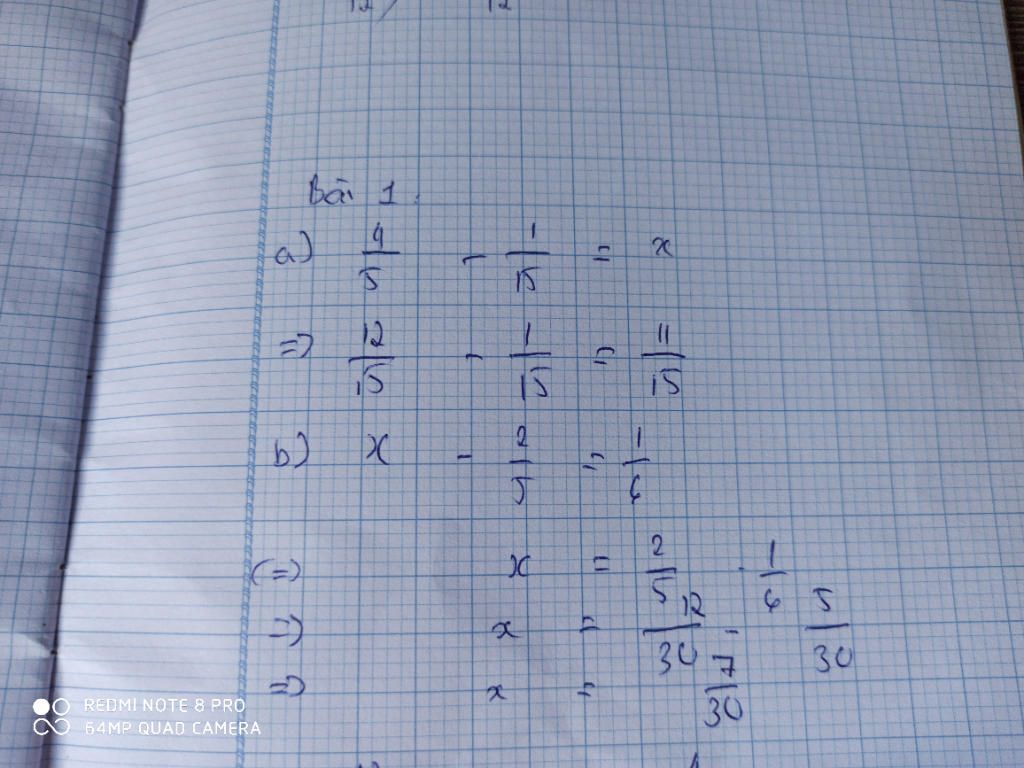 12) 12
Bài 1.
a) 4/5 - 1/15 = x
=> 12/15 - 1/15 = 11/15
b) x - 2/5 = 1/6
(=) x = 2/5 - 1/6
=) x = 12/30 - 5/30
=) x = 7/30
REDMI NOTE 8 PRO
64MP QUAD CAMERA